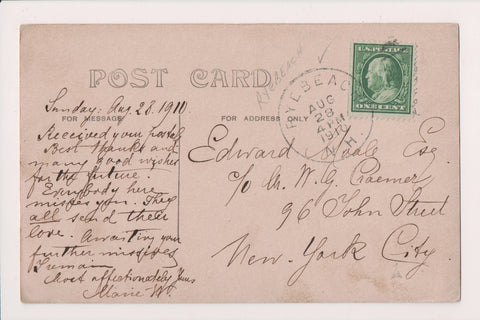 POST CARD
Rye Beach
Sunday, Aug 28. 1910.
FOR MESSAGE
FOR ADDRESS ONLY
Received your postal
Best thanks and
many good wishes
for the future.
Everybody here
misses you. They
all send their
love. Awaiting your
further missives
I remain
Most affectionately Yours
Marie
RYE BEACH
AUG
28
4 PM
1910
N.H.
U.S. POSTAGE
ONE CENT
Edward Esq
c/o Mr. W. G. Craemer
96 John Street
New-York City.